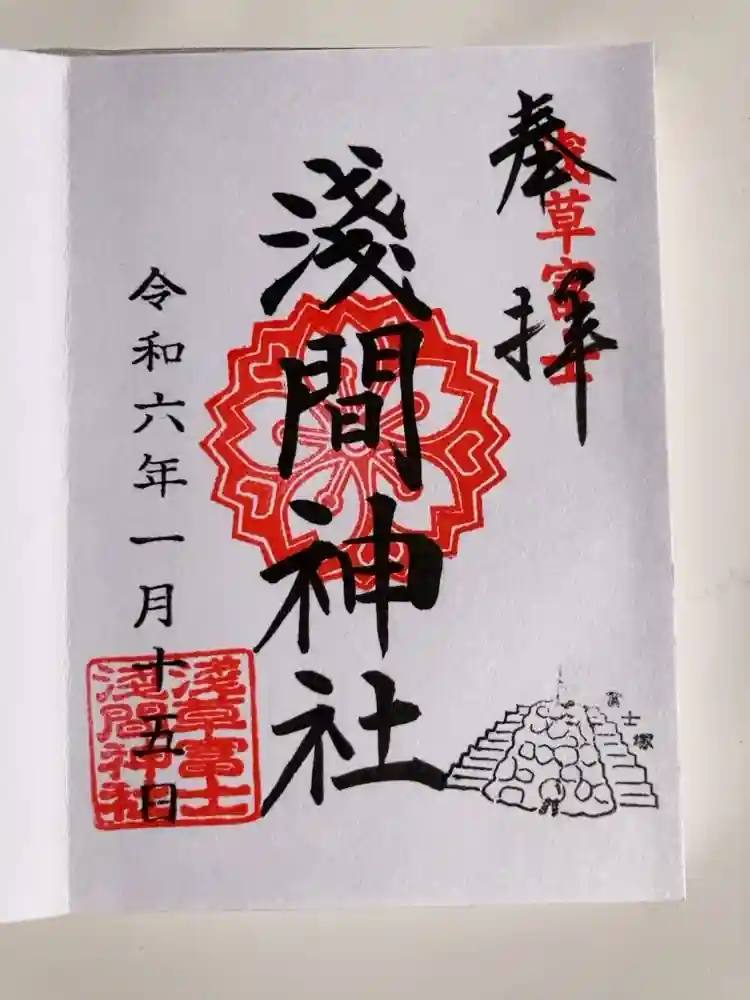 奉拝
浅草富士
淺間神社
令和六年一月十五日
淺草富士
淺間神社
富士塚